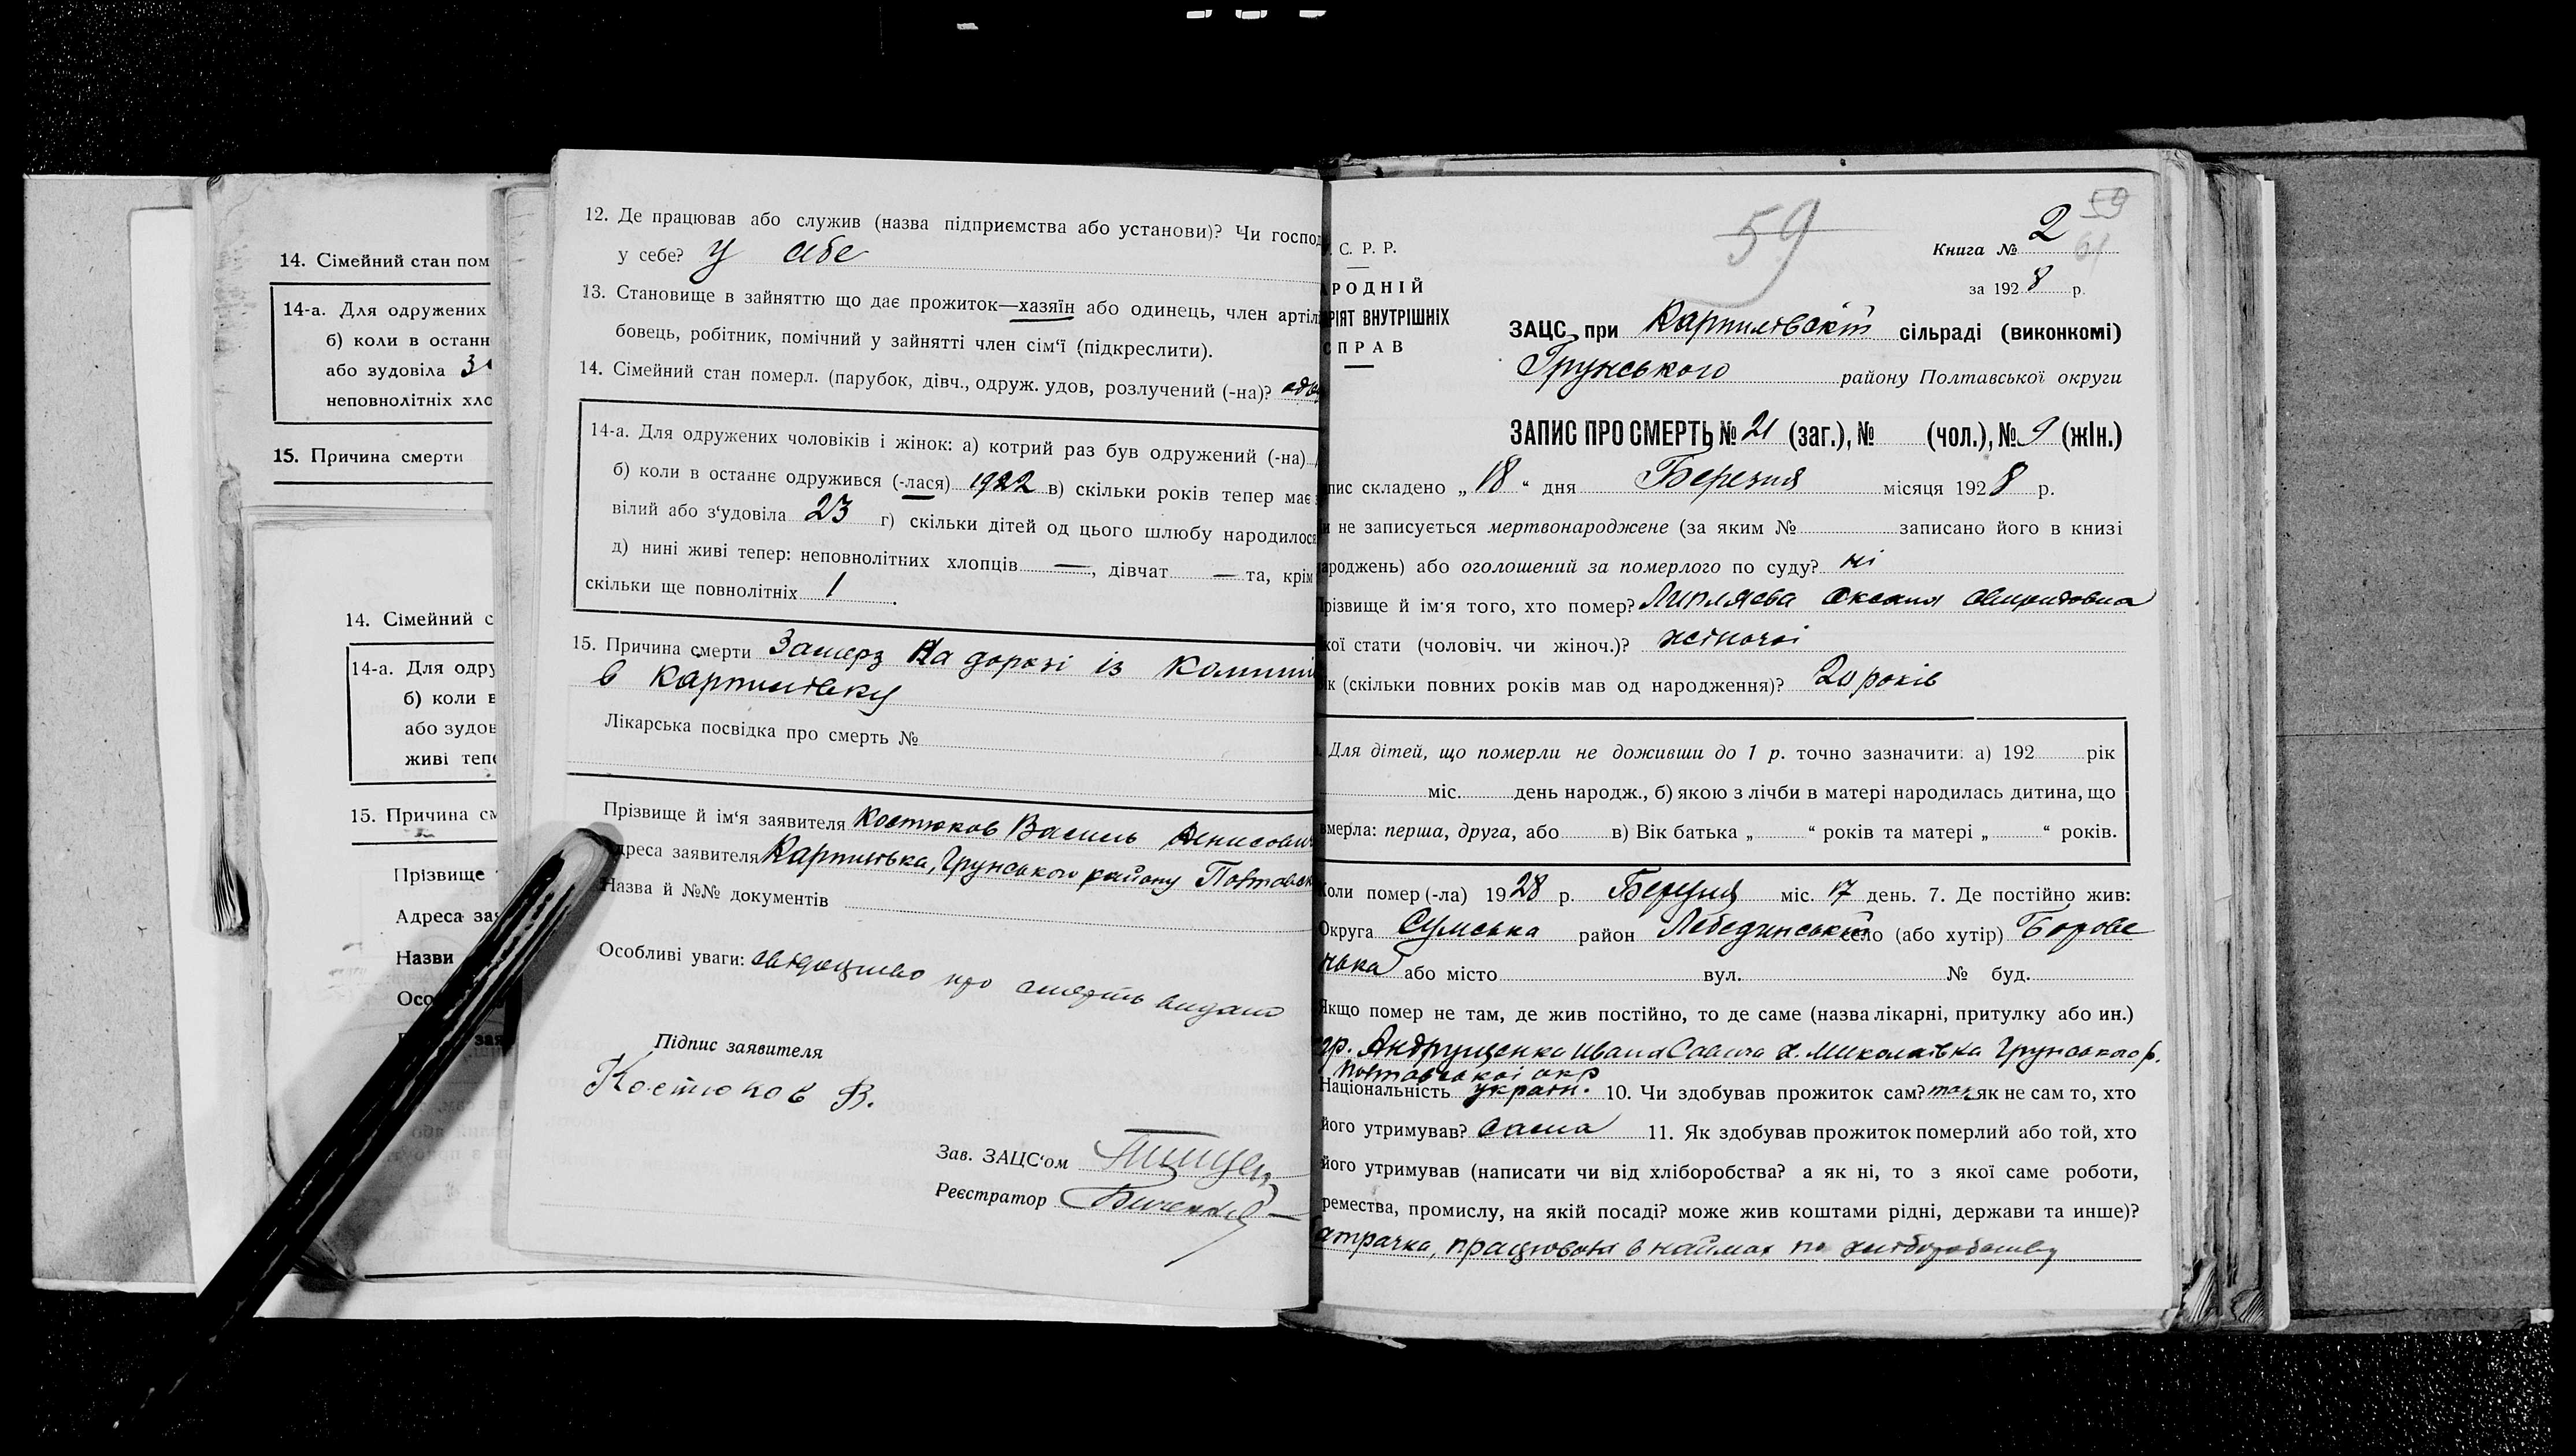 14. Сімейний стан пом
14-а. Для одружених
б) коли в останн
або зудовіла
неповнолітніх хло
15. Причина смерти
14. Сімейний с
14-а. Для одру
б) коли в
або зудов
живі тепе
15. Причина см
Прізвище
Адреса зая
Назви
Осо
зая
12. Де працював або служив (назва підприємства або установи)? Чи господ
у себе? У себе
13. Становище в зайняттю що дає прожиток—хазяїн або одинець, член артіл
бовець, робітник, помічний у зайнятті член сім‘ї (підкреслити).
14. Сімейний стан померл. (парубок, дівч., одруж. удов, розлучений (-на)?
14-а. Для одружених чоловіків і жінок: а) котрий раз був одружений (-на)
б) коли в останнє одружився (-лася) 1922 в) скільки років тепер має
вілий або з‘удовіла 23 г) скільки дітей од цього шлюбу народилося
д) нині живі тепер: неповнолітних хлопців —, дівчат — та, крім
скільки ще повнолітніх 1.
15. Причина смерти Замерз на дорозі із
в Карпилівку
Лікарська посвідка про смерть №
Прізвище й ім‘я заявителя Костюков Василь Денисович
Адреса заявителя Карпилівка, Грунського району Полтавськ
Назва й №№ документів
Особливі уваги: свідоцтво про смерть видано
Підпис заявителя
Костюков В.
Зав. ЗАЦС‘ом
Реєстратор
59
59
61
С. Р. Р.
РОДНІЙ
РІЯТ ВНУТРІШНІХ
СПРАВ
Книга № 2
за 1928 р.
ЗАЦС при Карпилівській сільраді (виконкомі)
Грунського району Полтавської округи
ЗАПИС ПРО СМЕРТЬ № 21 (заг.), № (чол.), № 9 (жін.)
пис складено „18“ дня Березня місяця 1928 р.
и не записується мертвонароджене (за яким № записано його в книзі
ароджень) або оголошений за померлого по суду? ні
Прізвище й ім‘я того, хто помер? Липляєва Оксана
кої стати (чоловіч. чи жіноч.)? жіночої
ік (скільки повних років мав од народження)? 20 років
Для дітей, що померли не доживши до 1 р. точно зазначити: а) 192 рік
міс. день народж., б) якою з лічби в матері народилась дитина, що
вмерла: перша, друга, або в) Вік батька „ “ років та матері „ “ років.
Коли помер (-ла) 1928 р. Березня міс. 17 день. 7. Де постійно жив:
Округа Сумська район Лебединський село (або хутір) Борове
нька або місто вул. № буд.
Якщо помер не там, де жив постійно, то де саме (назва лікарні, притулку або ин.)
гр. Андрущенка Ивана Савича х. Миколаївка Грунського р.
Полтавської окр
Національність україн. 10. Чи здобував прожиток сам? так як не сам то, хто
його утримував? Сама 11. Як здобував прожиток померлий або той, хто
його утримував (написати чи від хліборобства? а як ні, то з якої саме роботи,
ремества, промислу, на якій посаді? може жив коштами рідні, держави та инше)?
атрачка, працювала в наймах по хліборобству